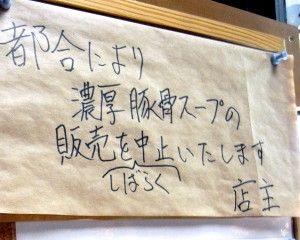 都合により
濃厚豚骨スープの
販売を中止いたします
しばらく
店主